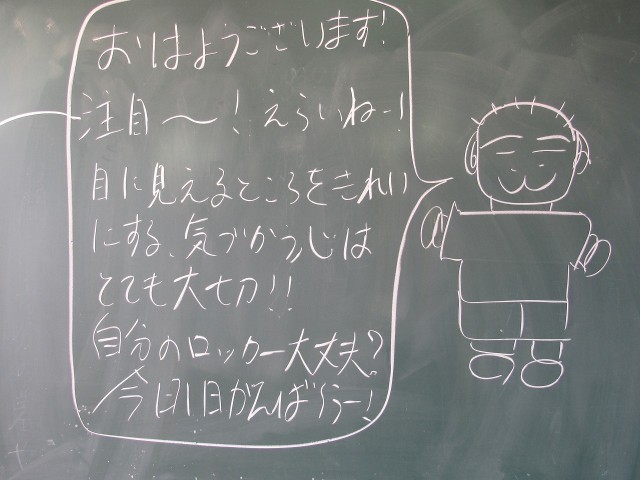 おはようございます!
注目〜!えらいねー!
目に見えるところをきれい
にする、気づかう心は
とても大切!!
自分のロッカー大丈夫?
今日1日がんばろうー!